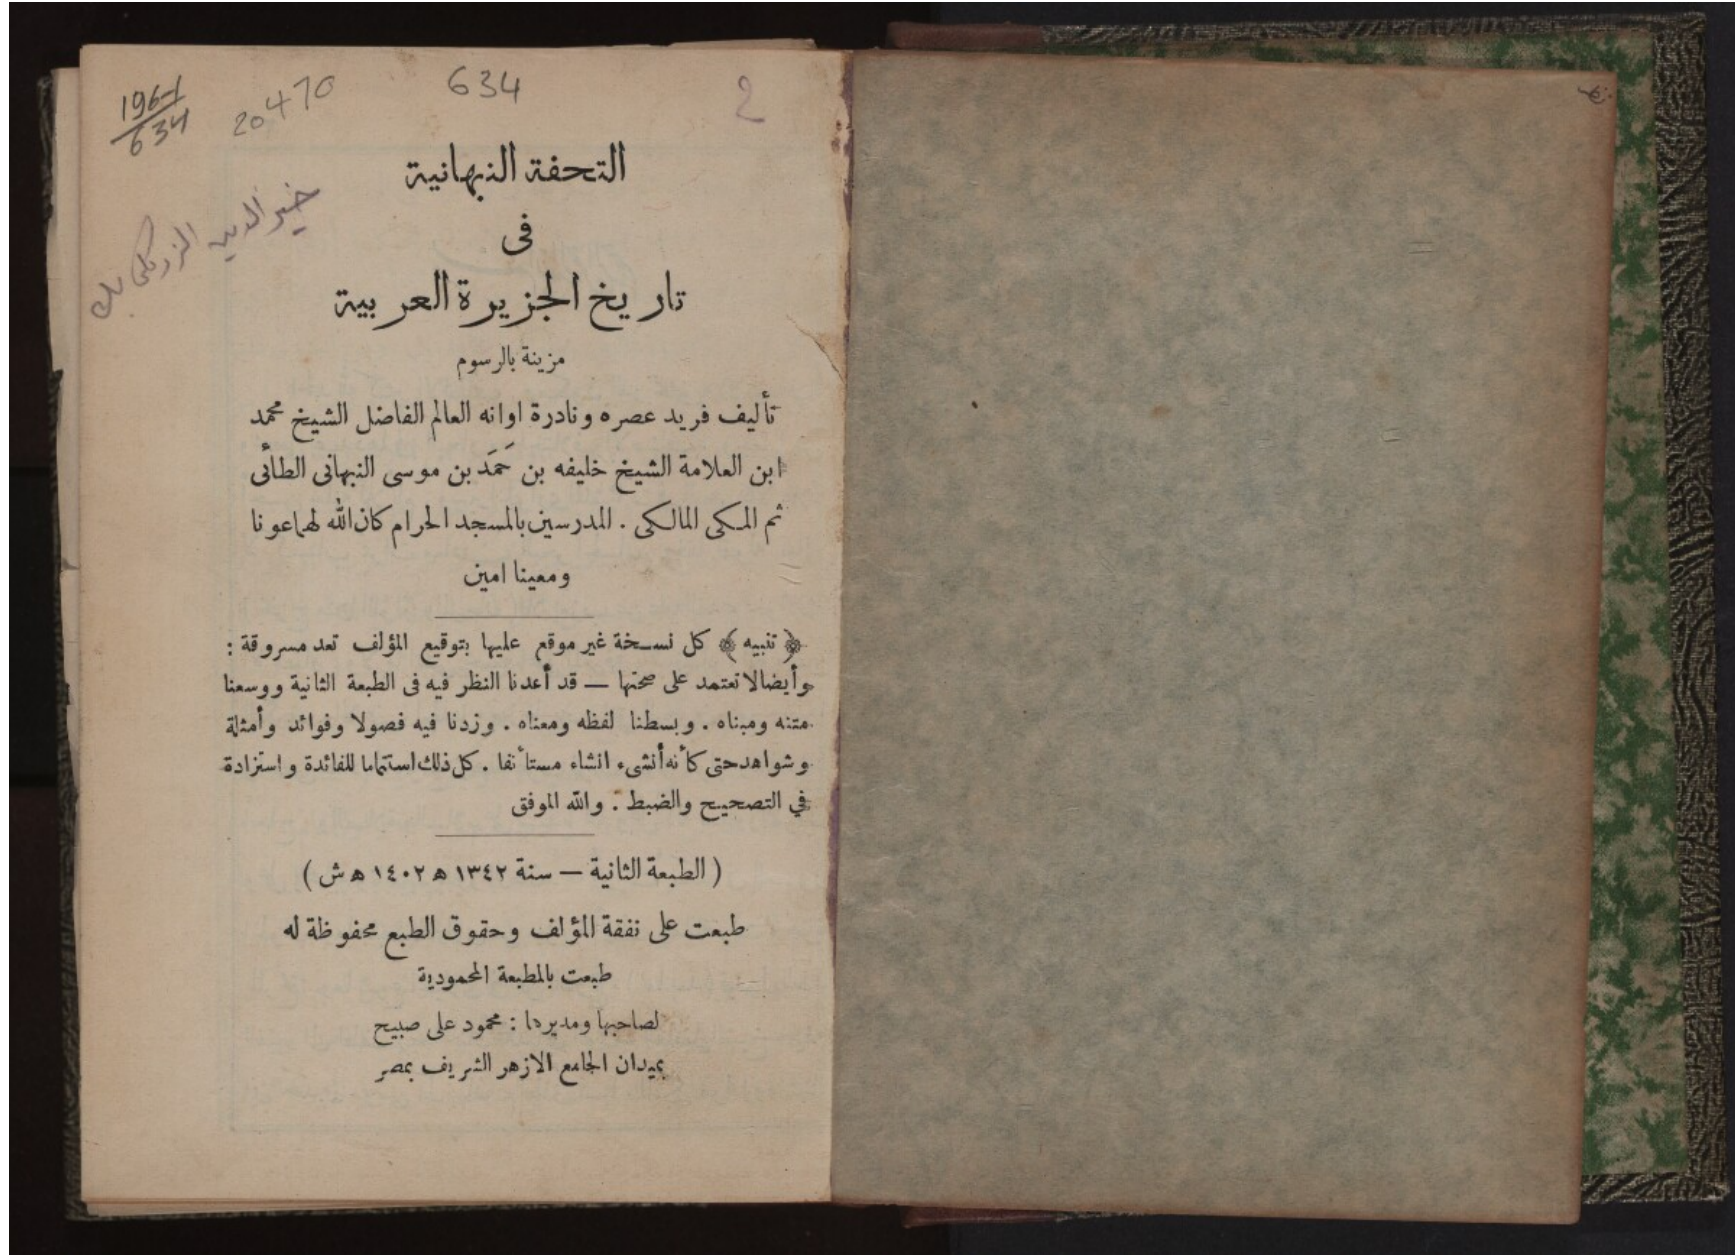 634
2
1961
634
20470
خير الدين الزركلي بك
التحفة النبهانية
فى
تاريخ الجزيرة العربية
مزينة بالرسوم
تأليف فريد عصره ونادرة اوانه العالم الفاضل الشيخ محمد
ابن العلامة الشيخ خليفه بن حَمَد بن موسى النبهانى الطائى
ثم المكى المالكى . المدرسين بالمسجد الحرام كان الله لهما عونا
ومعينا امين
﴿ تنبيه ﴾ كل نسخة غير موقع عليها بتوقيع المؤلف تعد مسروقة :
وأيضا لا تعتمد على صحتها — قد أعدنا النظر فيه فى الطبعة الثانية ووسعنا
متنه ومبناه . وبسطنا لفظه ومعناه . وزدنا فيه فصولا وفوائد وأمثلة
وشواهد حتى كأنه أنشىء انشاء مستأنفا . كل ذلك استتماما للفائدة واستزادة
في التصحيح والضبط . والله الموفق
( الطبعة الثانية — سنة ١٣٤٢ ه ١٤٠٢ ه ش )
طبعت على نفقة المؤلف وحقوق الطبع محفوظة له
طبعت بالمطبعة المحمودية
لصاحبها ومديرها : محمود على صبيح
بميدان الجامع الازهر الشريف بمصر